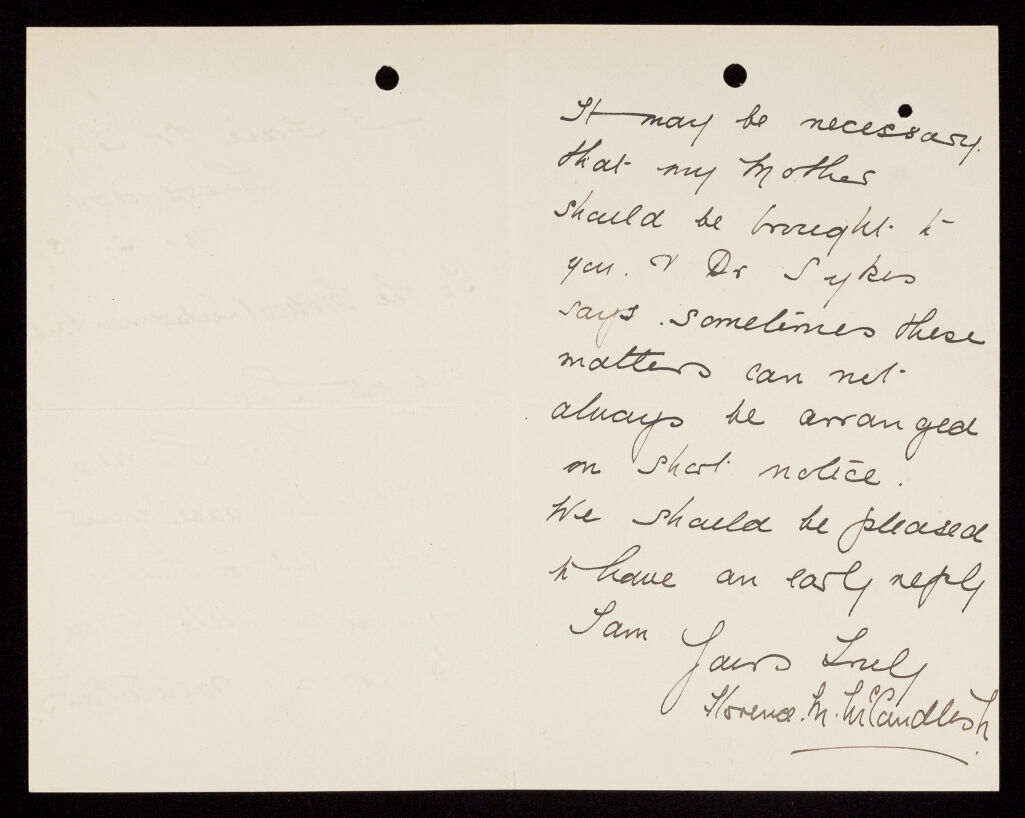 It may be necessary
that my Mother
should be brought to
you. & Dr Sykes
says. sometimes these
matters can not
always be arranged
on short notice.
We should be pleased
to have an early reply
I am
Yours Truly
Florence. M. McCandlish